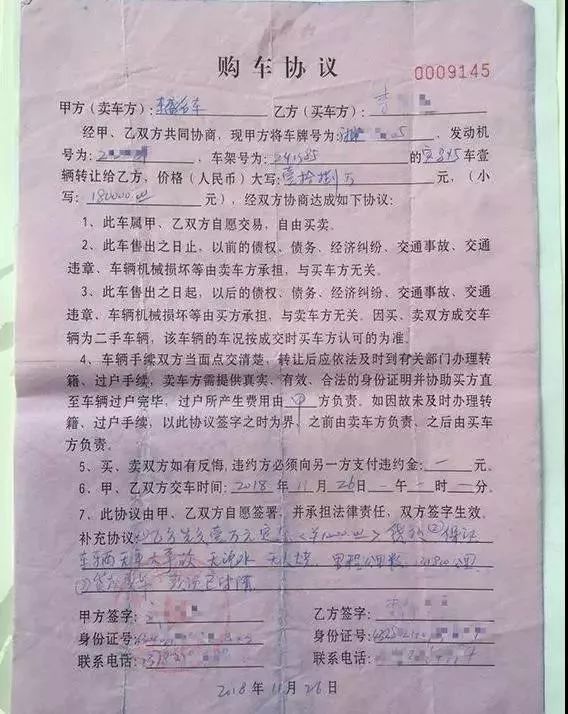 购车协议
0009145
甲方（卖车方）： 乙方（买车方）：
经甲、乙双方共同协商，现甲方将车牌号为 ，发动机
号为： ，车架号为：241985 的宝345车壹
辆转让给乙方，价格（人民币）大写：壹拾捌万 元，（小
写：180000 元），经双方协商达成如下协议：
1、此车属甲、乙双方自愿交易，自由买卖。
2、此车售出之日止，以前的债权、债务、经济纠纷、交通事故、交通
违章、车辆机械损坏等由卖车方承担，与买车方无关。
3、此车售出之日起，以后的债权、债务、经济纠纷、交通事故、交通
违章、车辆机械损坏等由买方承担，与卖车方无关。因买、卖双方成交车
辆为二手车辆，该车辆的车况按成交时买车方认可的为准。
4、车辆手续双方当面点交清楚，转让后应依法及时到有关部门办理转
籍、过户手续，卖车方需提供真实、有效、合法的身份证明并协助买方直
至车辆过户完毕，过户所产生费用由 甲 方负责。如因故未及时办理转
籍、过户手续，以此协议签字之时为界、之前由卖车方负责、之后由买车
方负责。
5、买、卖双方如有反悔，违约方必须向另一方支付违约金：一元。
6、甲、乙双方交车时间：2018年11月26日一午一时一分。
7、此协议由甲、乙双方自愿签署，并承担法律责任，双方签字生效。
补充协议：
车辆无重大事故 无泡水 无火烧，里程公里数，31800公里
甲方签字： 乙方签字：
身份证号： 身份证号：
联系电话： 联系电话：
2018年11月26日